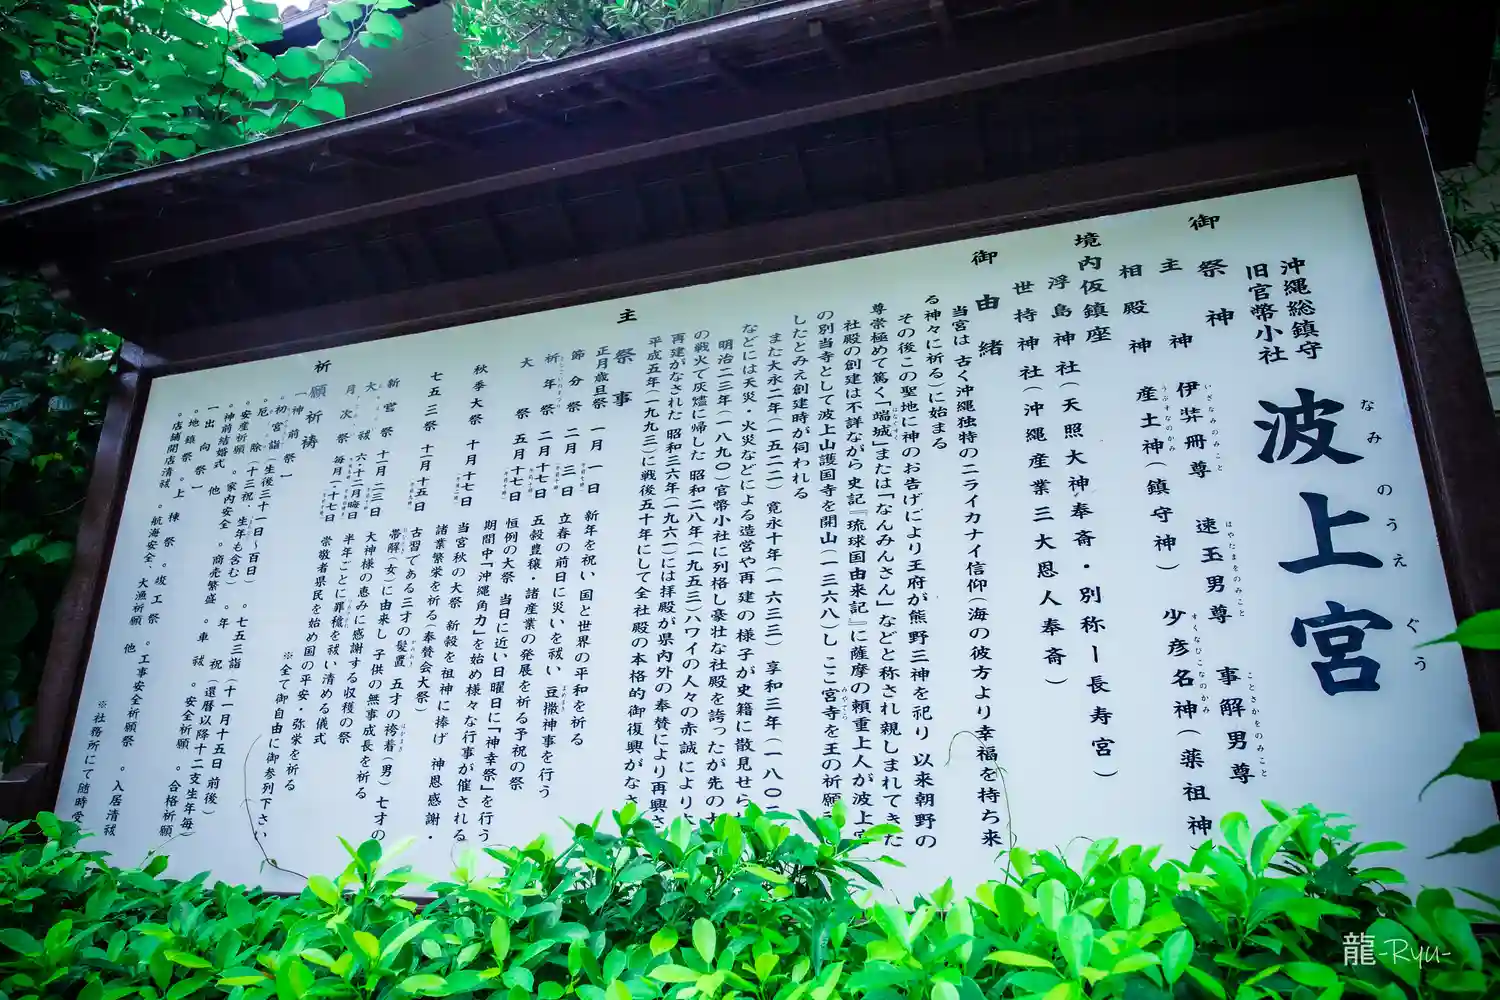 沖縄総鎮守
旧官幣小社
波上宮
なみのうえぐう
御祭神
主神
伊弉冊尊
いざなみのみこと
速玉男尊
はやたまをのみこと
事解男尊
ことさかをのみこと
相殿神
産土神(鎮守神)
うぶすなのかみ
少彦名神(薬祖神)
すくなひこなのかみ
境内仮鎮座
浮島神社(天照大神奉斎・別称ー長寿宮)
世持神社(沖縄産業三大恩人奉斎)
御由緒
当宮は 古く沖縄独特のニライカナイ信仰(海の彼方より幸福を持ち来
る神々に祈る)に始まる
その後この聖地に神のお告げにより王府が熊野三神を祀り 以来朝野の
尊崇極めて篤く「端城」または「なんみんさん」などと称され親しまれてきた
社殿の創建は不詳ながら史記『琉球国由来記』に薩摩の頼重上人が波上宮
の別当寺として波上山護国寺を開山(一三六八)し ここ宮寺を王の祈願
したとみえ創建時が伺われる
また大永二年(一五二二) 寛永十年(一六三三) 享和三年(一八〇
などには天災・火災などによる造営や再建の様子が史籍に散見せら
明治二三年(一八九〇)官幣小社に列格し豪壮な社殿を誇ったが先の大
の戦火で灰燼に帰した 昭和二八年(一九五三)ハワイの人々の赤誠により
再建がなされた 昭和三六年(一九六一)には拝殿が県内外の奉賛により再興さ
平成五年(一九九三)に戦後五十年にして全社殿の本格的御復興がなさ
主祭事
正月歳旦祭 一月一日 新年を祝い国と世界の平和を祈る
節分祭 二月三日 立春の前日に災いを祓い 豆撒神事を行う
祈年祭 二月十七日 五穀豊穣・諸産業の発展を祈る予祝の祭
大祭 五月十七日 恒例の大祭 当日に近い日曜日に「神幸祭」を行う
期間中「沖縄角力」を始め様々な行事が催される
秋季大祭 十月十七日 当宮秋の大祭 新穀を祖神に捧げ 神恩感謝・
諸業繁栄を祈る(奉賛会大祭)
七五三祭 十一月十五日 古習である三才の髪置 五才の袴着(男) 七才の
帯解(女)に由来し 子供の無事成長を祈る
新宮祭 十一月二三日 大神様の恵みに感謝する収穫の祭
大祓 六・十二月晦日 半年ごとに罪穢を祓い清める儀式
月次祭 毎月一・十七日 崇敬者県民を始め国の平安・弥栄を祈る
※全て御自由に御参列下さい
祈願祈祷
一神前祭一
。初宮詣(生後三十一日〜百日) 。七五三詣(十一月十五日前後)
。厄除(十三祝、生年も含む) 。年祝(還暦以降十二支生年毎)
。安産祈願 。家内安全 。商売繁盛 。車祓 。安全祈願 。合格祈願
。神前結婚式 他
一出向祭一
。地鎮祭 。上棟祭 。竣工祭 。工事安全祈願祭 。入居清祓
。店舗開店清祓 。航海安全、大漁祈願 他
※社務所にて随時受
龍-Ryu-